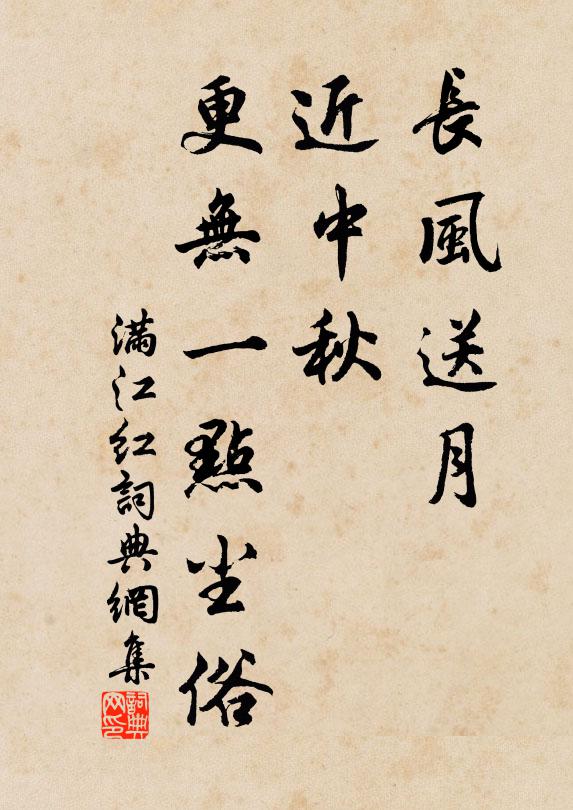 長風送月
近中秋
更無一點尘俗
滿江紅詞典網集
詞典
网印